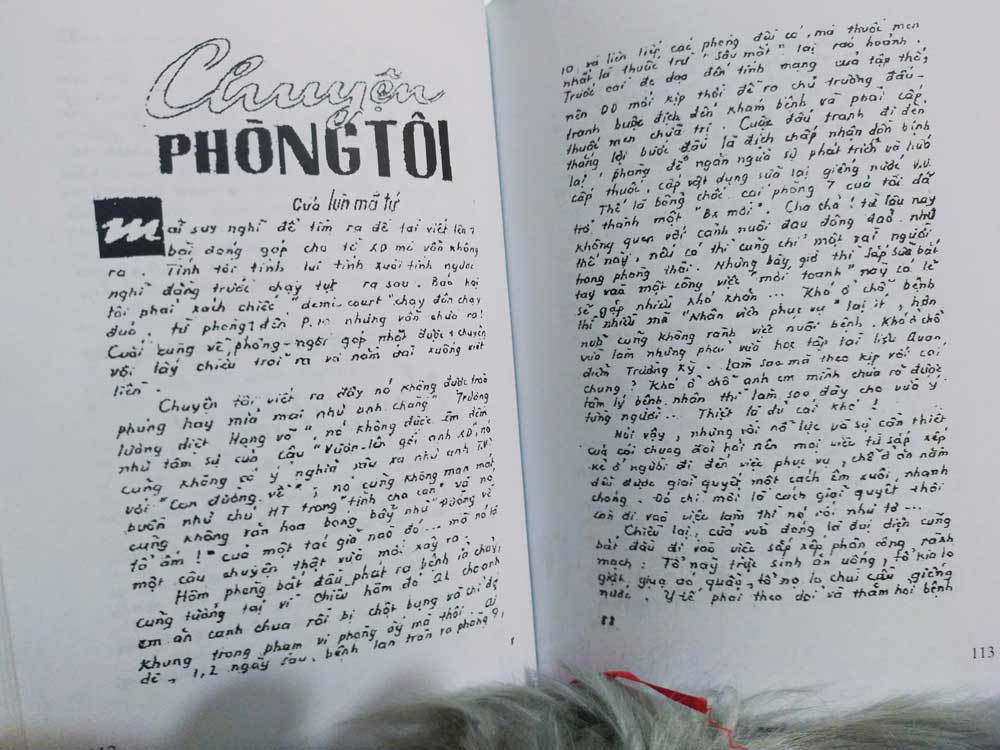 Chuyện
PHÒNG TÔI
Của lùn mã tử
Mãi suy nghĩ để tìm ra đề tài viết lên 1
bài đóng góp cho tờ XD mà vẫn không
ra. Tính tới tính lui tính xuôi tính ngược
nghĩ đằng trước chạy tụt ra sau. Báo hại
tôi phải xách chiếc "demi-court" chạy đến chạy
đua, từ phòng 1 đến P.10 nhưng vẫn chưa ra!
Cuối cùng về phòng ngồi góp nhặt được 1 chuyện
vội lấy chiếu trải ra và nằm dài xuống viết
liền.
Chuyện tôi viết ra đây nó không được trào
phúng hay mỉa mai như anh chàng "Trương
lương diệt Hạng võ" nó không được êm đềm
như tâm sự của cậu "Vươn-lên gởi anh XD", nó
cũng không có ý nghĩa sâu xa như anh T.V.
với "Con đường về"; nó cũng không man mát
buồn như chú HT trong "tình cha con" và nó
cũng không rắn hoa bóng bẩy như "Đường về
tổ ấm!" của một tác giả nào đó... mà nó là
một câu chuyện thật vừa mới xảy ra.
Hôm phòng bắt đầu phát ra bệnh ỉa chảy,
cũng tưởng tại vì chiều hôm đó QL cho anh
em ăn canh chua rồi bị chột bụng và chỉ
khung trong phạm vi phòng ấy mà thôi. Ai
dè, 1,2 ngày sau, bệnh lan tràn ra phòng 9,
1
10 và liên tiếp các phòng đều có, mà thuốc men
nhất là thuốc trừ "sâu mắt" lại ráo hoảnh.
Trước cái đe dọa đến tính mạng của tập thể,
nên ĐD mới kịp thời đề ra chủ trương đấu-
tranh buộc địch đến khám bệnh và phải cấp
thuốc men chữa trị. Cuộc đấu tranh đi đến
thắng lợi bước đầu là địch chấp nhận dồn bịnh
lại 1 phòng để ngăn ngừa sự phát triển và hứa
cấp thuốc, cấp vật dụng sửa lại giếng nước v.v.
Thế là bỗng chốc cái phòng 7 của tôi đã
trở thành một "Bx mới". Cha chả! từ lâu nay
không quen với cảnh nuôi đau đông đảo như
thế này, nếu có thì cũng chỉ một vài người
trong phòng thôi. Nhưng bây giờ thì sắp sửa bắt
tay vào một công việc "mới toanh" này có lẽ
sẽ gặp nhiều khó khăn... Khó ở chỗ bệnh
thì nhiều mà "Nhân viên phục vụ" lại ít, hơn
nữa cũng không rành việc nuôi bệnh. Khó ở chỗ
vừa làm nhưng phải vừa học tập tài liệu Quan
điểm Trường Kỳ. Làm sao mà theo kịp với cái
chung? Khó ở chỗ anh em mình chưa rõ được
tâm lý bệnh nhân thì làm sao đây cho vừa ý
từng người... Thiệt là đủ cái khó!
Nói vậy, nhưng với nổ lực và sự cần thiết
của cái chung đòi hỏi nên mọi việc từ sắp xếp
kẻ ở người đi đến việc phục vụ, chỗ ở ăn nằm
đều được giải quyết một cách êm xuôi, nhanh
chóng. Đó chỉ mới là cách giải quyết thôi
còn đi vào việc làm thì nó rối như tơ...
Chiều lại, cửa vừa đóng là đại diện cũng
bắt đầu đi vào việc sắp xếp phân công rành
mạch: Tổ này trực sinh ăn uống, tổ kia lo
giặt, giua áo quần, tổ nọ lo chui cầu, giếng
nước. Y tế phải theo dõi và thăm hỏi bệnh
113